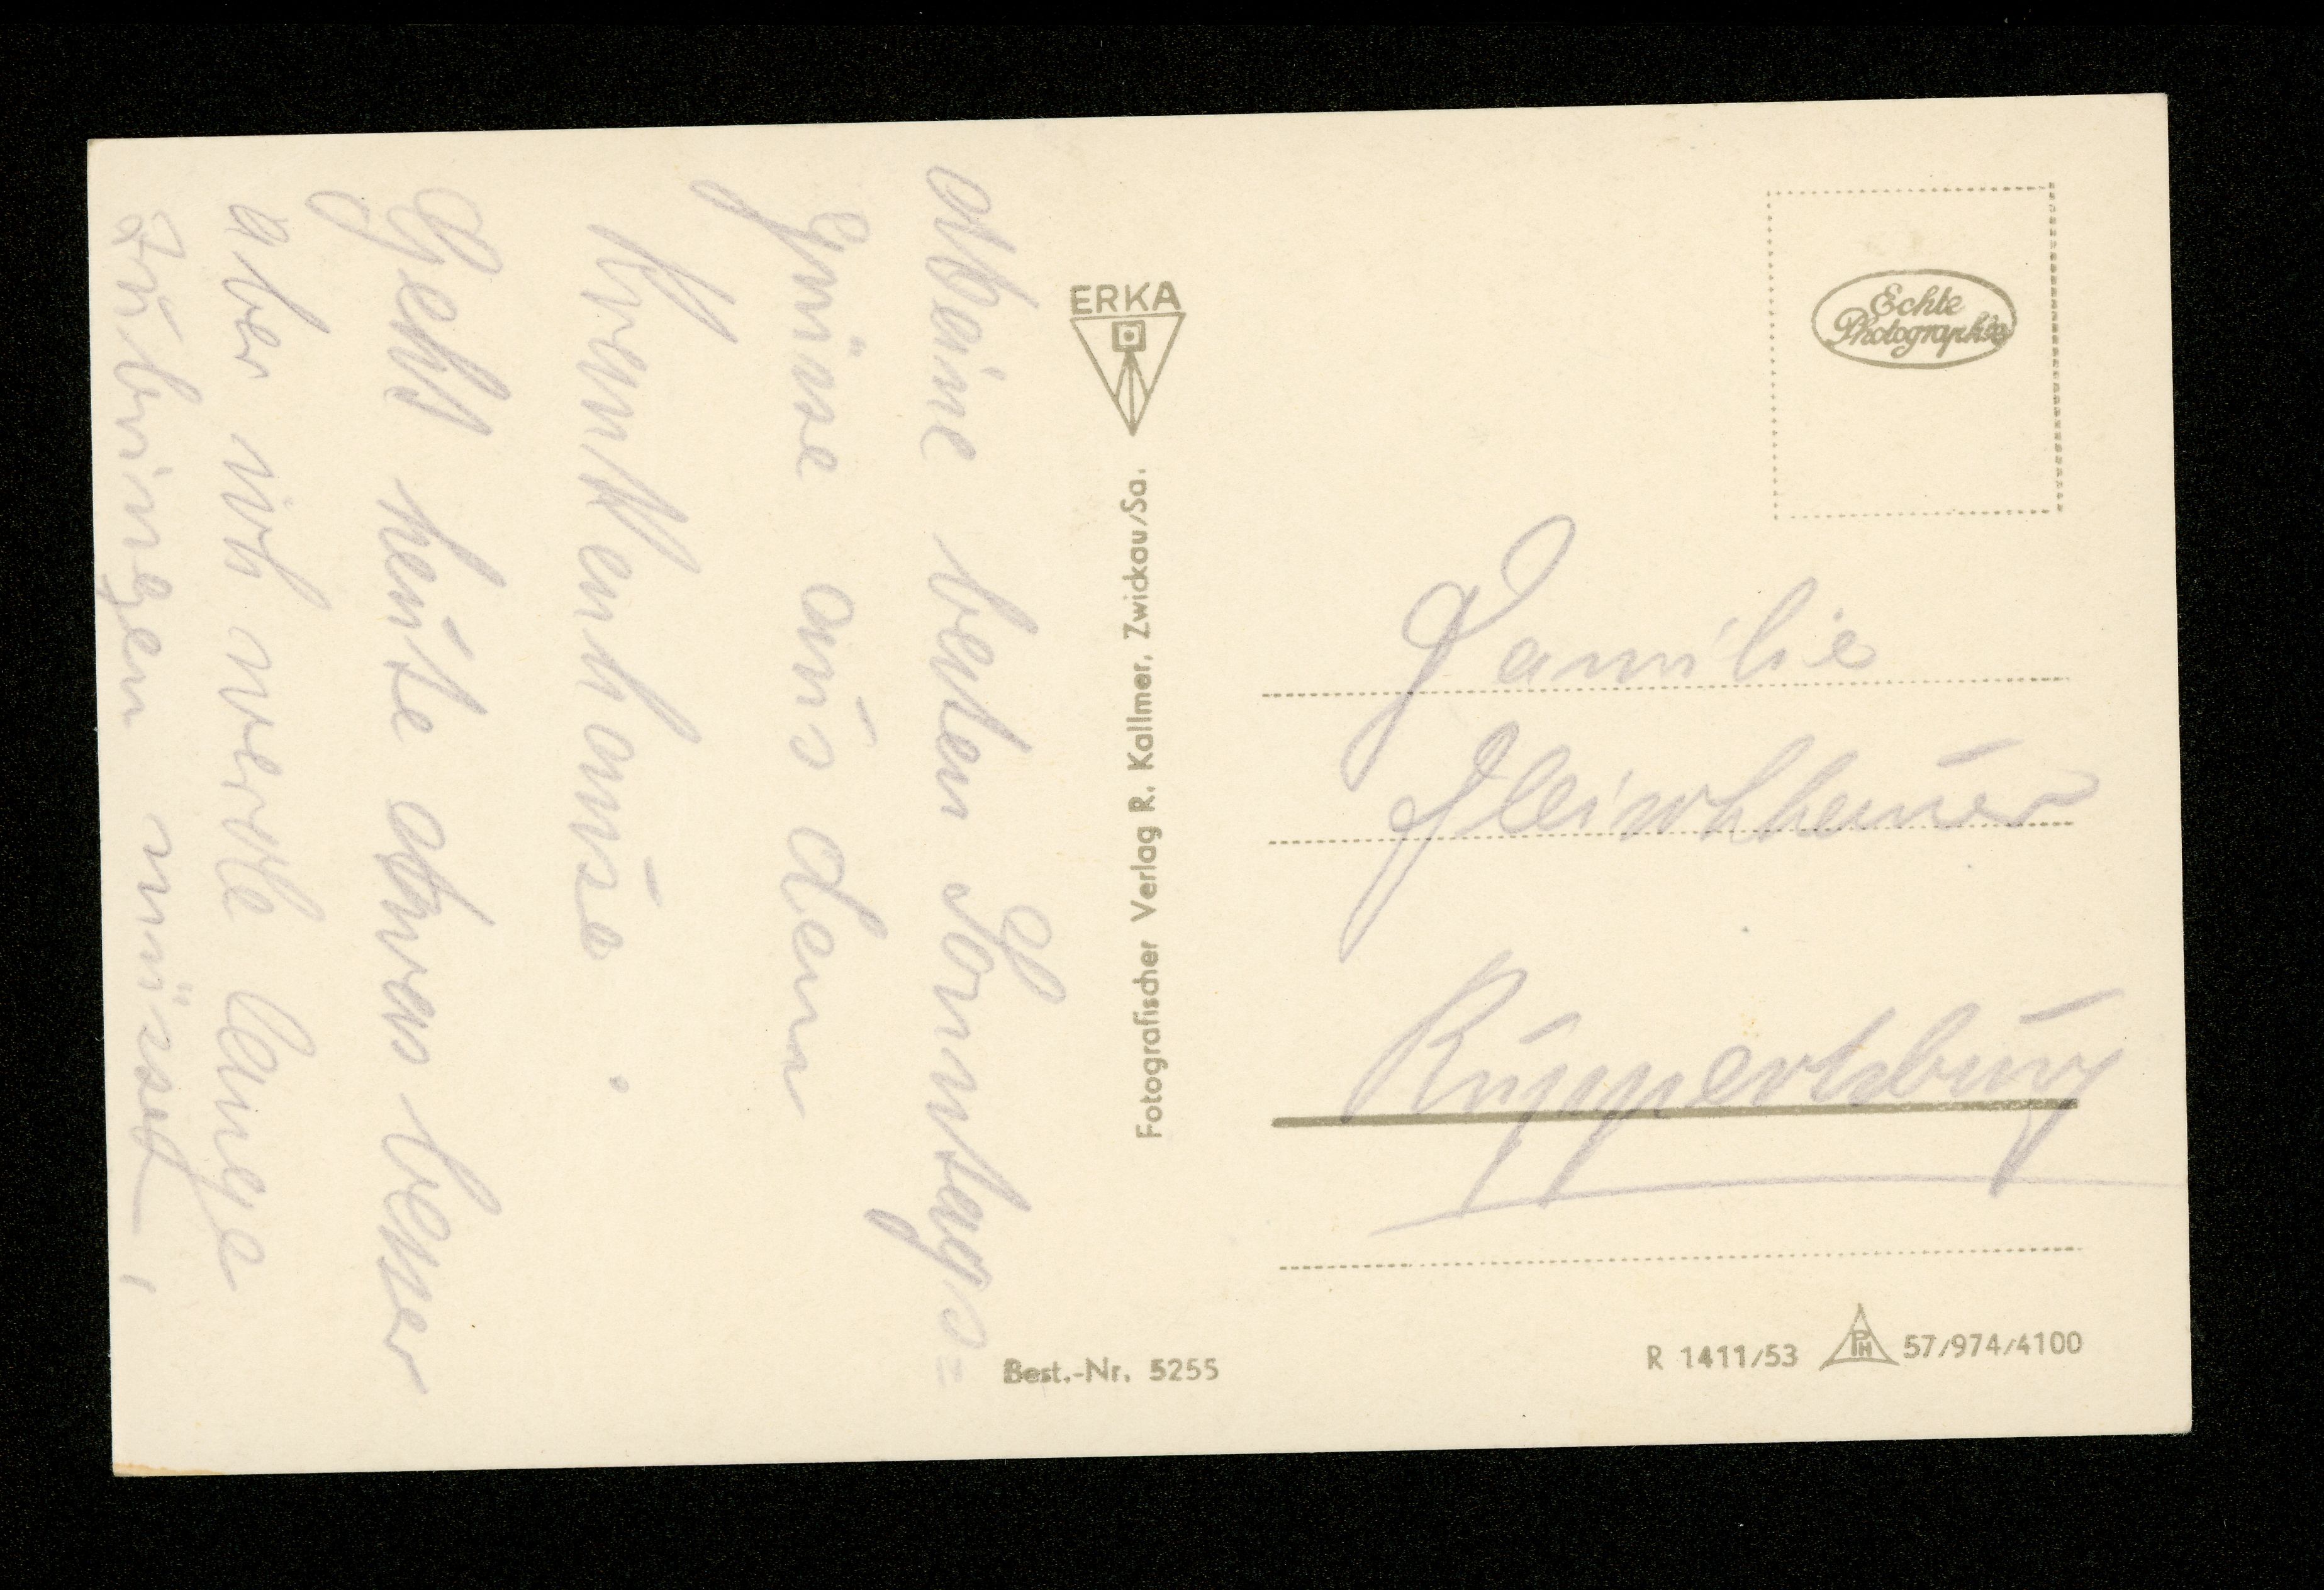 Meine besten Sonntags=
Grüsse aus dem
Krankenhause.
Geht heute etwas besser
aber ich werde lange
zubringen
ERKA
Fotografischer Verlag R. Kallmer, Zwickau/Sa.
Best.-Nr. 5255
Echte
Photographie
Familie
Fleischhauer
Ruppertsburg
R 1411/53 PH 57/974/4100